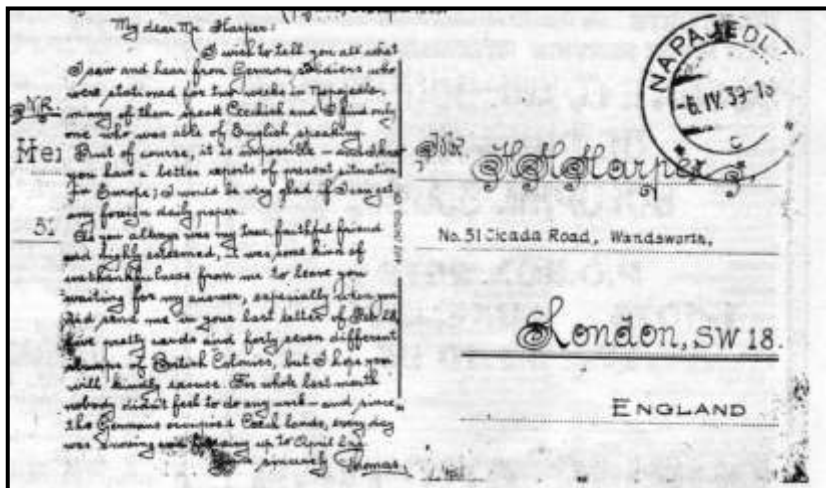 My dear Mr. Harper:
I wish to tell you all what
I saw and hear from German soldiers who
were stationed for two weeks in Napajedla,
many of them speak Czechish and I find only
one who was able of English speaking.
But of course, it is impossible – and
you have a better reports of present situation
in Europe; I would be very glad if I can get
any foreign daily paper.
As you always was my true, faithful friend
and highly esteemed, it was some kind of
unthankfulness from me to leave you
waiting for my answer, especially when you
did send me in your last letter of Feb.
five pretty cards and forty seven different
stamps of British Colonies, but I hope you
will kindly excuse. For whole last month
nobody didn't feel to do any work – and since
the Germans occupied Czech lands, every day
was snowing and freezing up to April
sincerely Thomas.
Mr.
Mr. H H Harper,
No. 51 Cicada Road, Wandsworth,
London, SW 18.
ENGLAND
NAPAJEDL
-6. IV. 39-
C